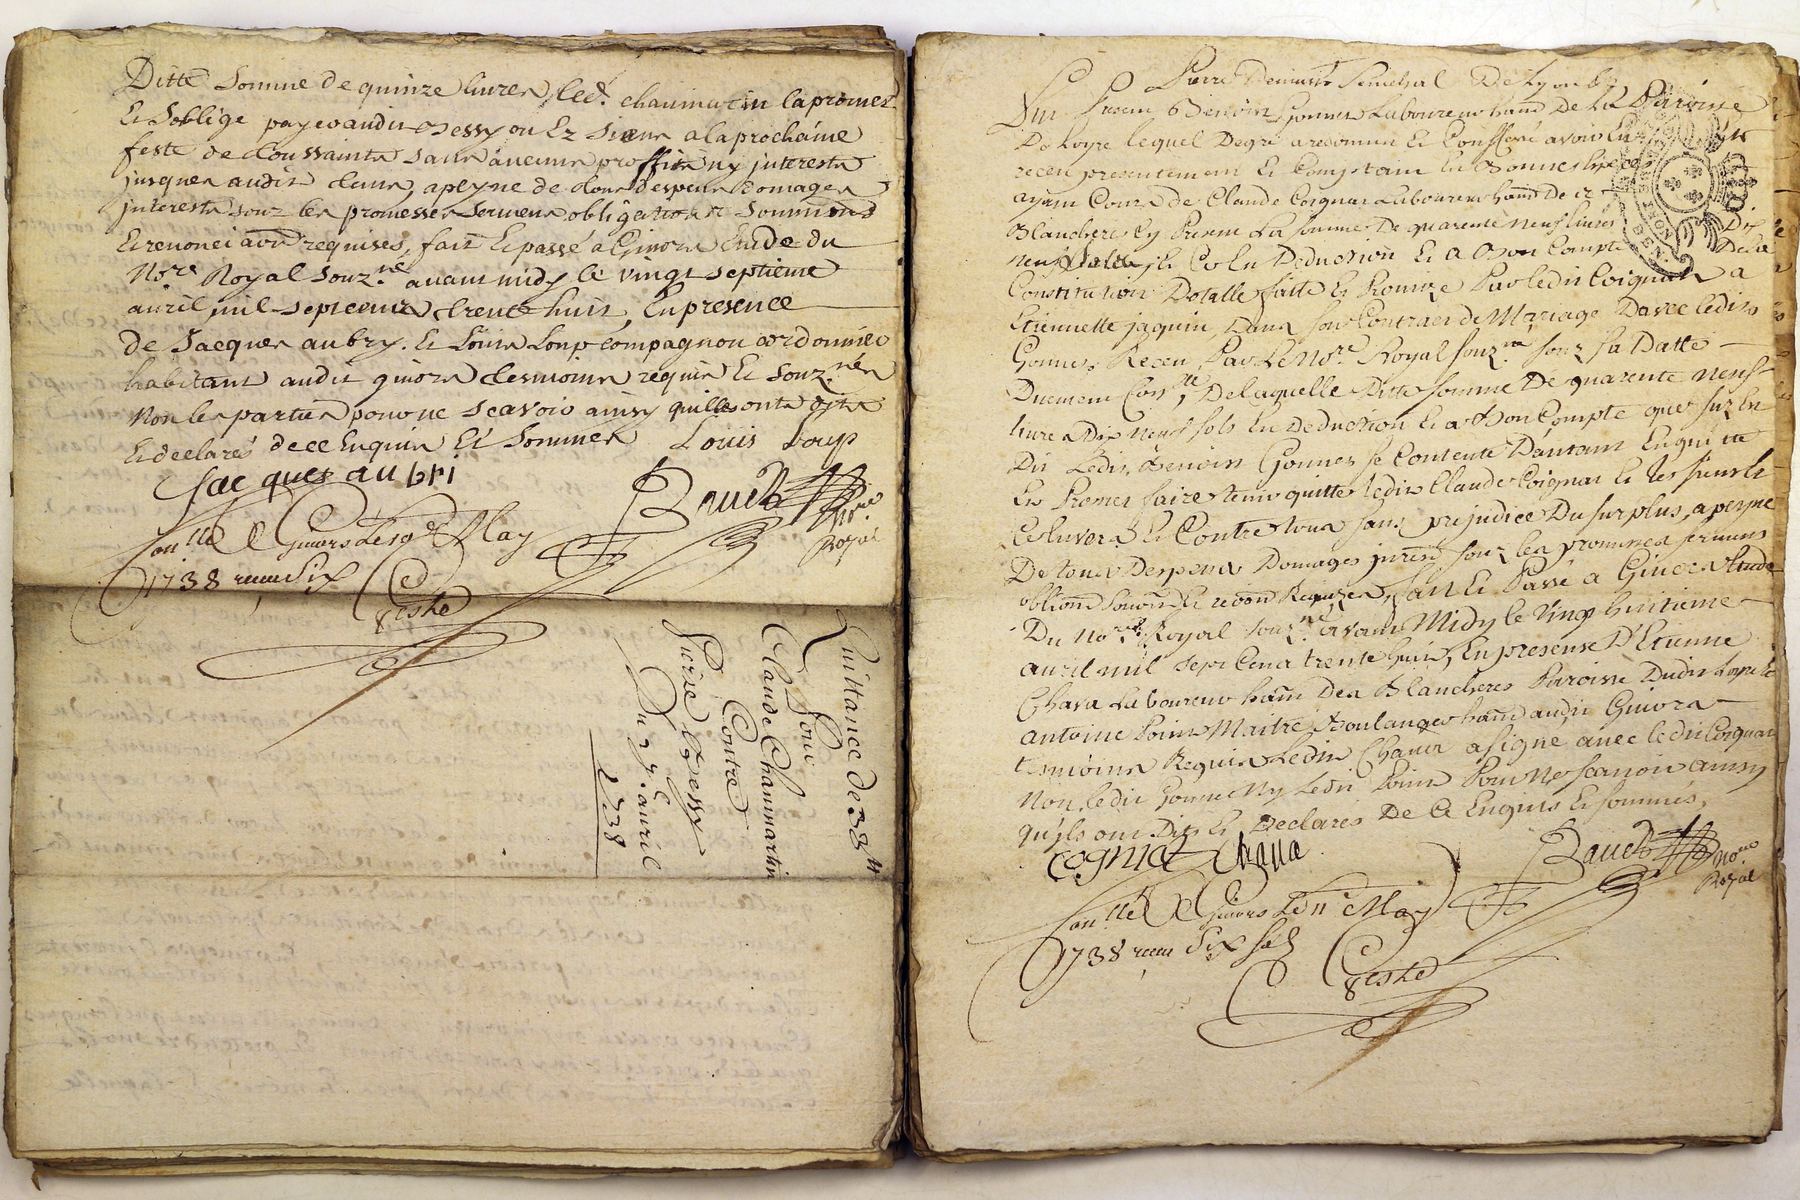 Ditte Somme de quinze livres led. chanmartin la promet
Et Soblige payer audit Bessy ou Ez Siens a la prochaine
feste de Toussaints sans aucuns proffits ny interests
jusques audit temps, a peyne de tous despens domages
interests souz les promesses serments obligations Soumissions
Et renonciaons requises, fait Et passé a Givors Etude du
No.re Royal Souz.né avant midy le vingt septieme
avril mil sept cents trente huit, En presence
de Jacques aubry. Et Louis Loup compagnon cordonnier
habitant audit givors tesmoins requis Et Souz.nés
Non les parties pour ne scavoir ainsy quilles onts dits
Et declarés de ce Enquis Et Sommés Louis Loup
Jacques aubri
Bauds No.re
Royal
Con.llé A Givors Le 10e May
1738 recu Six s
Geste
Quittance de 38 lt
Pour
Claude Chanmartin
Contre
Pierre Bessy
Du 27.e avril
1738
Pierre Senechal De Lyon
Benoist Gonnet Laboureur habt De La Paroisse
De Loyre lequel De gre a reconnu Et Confessé avoir Eu
receu presentement Et Comptant En Bonnes Especes
ayant Cours de Claude Coignat Laboureur habt De
Blancheres Cy Present La Somme De quarente neuf livres Dix
neuf sols Et Ce En Deduction Et a Bon Compte De La
Constitution Dotalle faite Et Promize Par ledit Coignat a
Etiennette jaquin, Dans son Contract de Mariage D'avec ledit
Gonnet Receu Par Le No.re Royal souz.né souz sa Datte
Duement Con.llé, De laquelle Ditte somme De quarente neuf
livres Dix neuf sols En Deduction Et a Bon Compte que sus En
Dit Ledit Benoist Gonnet se Contente D'autant En quitte
Et Promet faire tenir quitte ledit Claude Coignat Et les siens
Envers Et Contre tous sans prejudice Du surplus, a peyne
De tous Despens Domages interests souz les promesses serments
obliaons soumons Et renonc Requises, fait Et Passé a Givors Etude
Du No.re Royal souz.né avant Midy le Vingt huitieme
avril mil sept Cens trente huit, En presense D'Etienne
Chava Laboureur habt Des Blancheres Paroisse Dudit Loyre Et
antoine Poins Maitre Boulanger habt audit Givors
tesmoins Requis Ledit Chava a signé avec ledit Coignat
Non ledit Gonnet Ny Ledit Poins Pour Ne scavoir ainsy
qu'ils ont Dits Et Declarés De Ce Enquis Et sommés,
Cogniat Chava
Bauds No.re
Royal
Con.llé A Givors Le 11e May
1738 recu Six sols
Geste